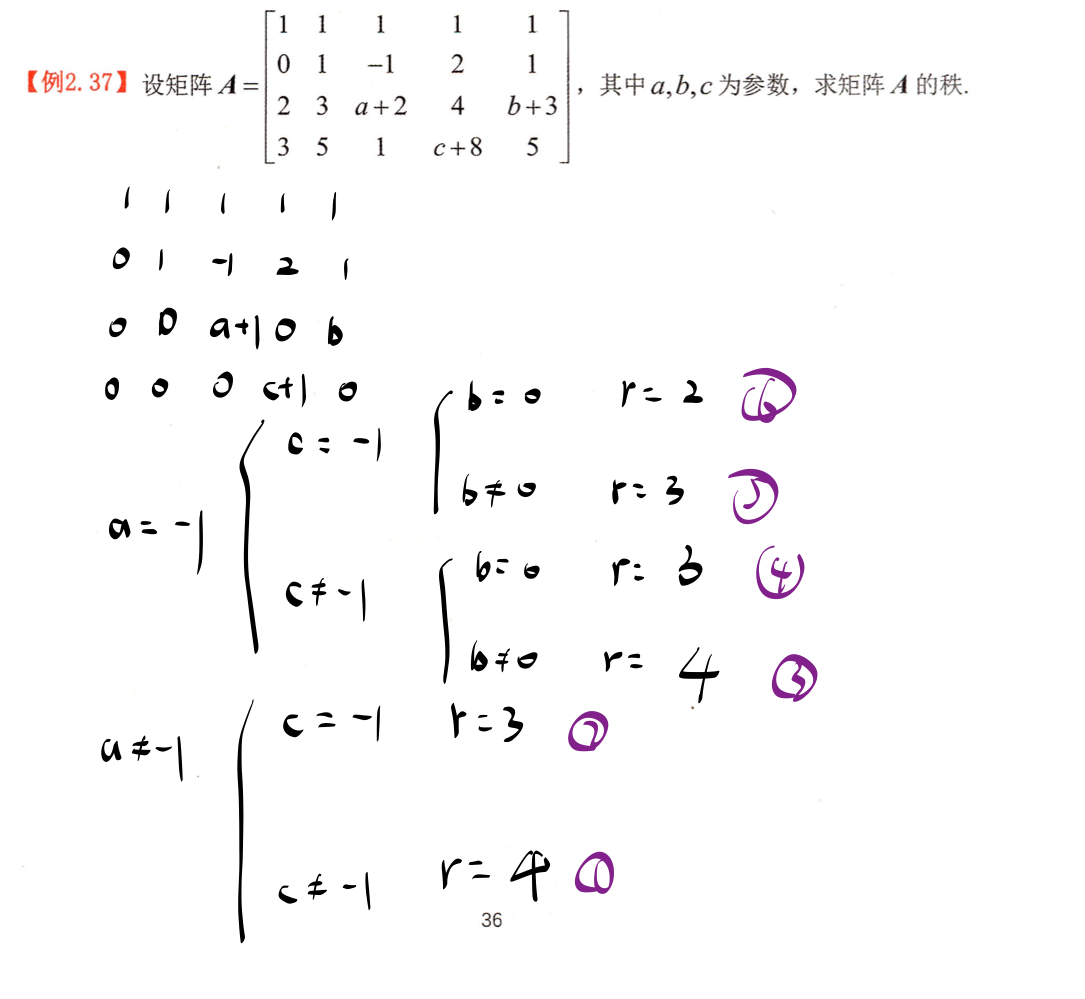 【例2.37】设矩阵 A = [1 1 1 1 1
0 1 -1 2 1
2 3 a+2 4 b+3
3 5 1 c+8 5], 其中 a,b,c 为参数, 求矩阵 A 的秩.
1 1 1 1 1
0 1 -1 2 1
0 0 a+1 0 b
0 0 0 c+1 0
b = 0 r = 2 ⑥
c = -1
b ≠ 0 r = 3 ⑤
a = -1
b = 0 r = 3 ④
c ≠ -1
b ≠ 0 r = 4 ③
c = -1 r = 3 ②
a ≠ -1
c ≠ -1 r = 4 ①
36